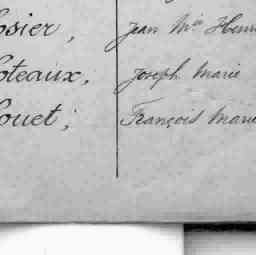 osier, Jean Mie Henri
oteaux, Joseph Marie
ouet; François Marie